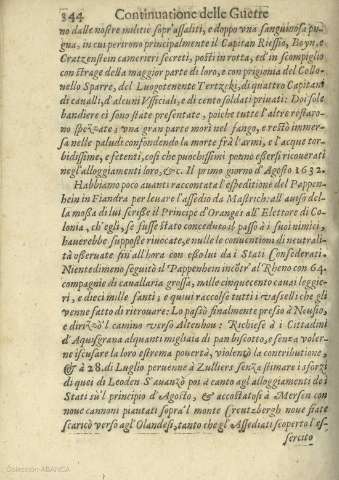 344 Continuatione delle Guerre
no dalle nostre militie sopr'assaliti, e doppo vna sanguinosa pu-
gna, in cui perirono principalmente il Capitan Riessio, Boyn, e
Cratzenstein camerieri secreti, posti in rotta, ed in scompiglio
con strage della maggior parte di loro, e con prigionia del Collo-
nello Sparre, del Luogotenente Tertzki, di quattro Capitani
di cavalli, d'alcuni Vfficiali, e di cento soldati priuati. Doi sole
bandiere ci sono state presentate, poiche tutte l'altre restaro-
no spezzate; vna gran parte morì nel fango, e restò immer-
sa nelle paludi confondendo la morte frà l'armi, e l'acque tor-
bidissime, e fetenti, così che puochissimi poteno essersi ricouerati
negl'alloggiamenti loro, &c. Il primo giorno d'Agosto 1632.
Habbiamo poco auanti raccontata l'espeditione del Pappen-
hein in Fiandra per levare l'assedio da Mastrich: all'auiso del-
la mossa di lui scrisse il Principe d'Oranges all'Elettore di Co-
lonia, ch'egli, se fusse stato conceduto il passo à i suoi nimici,
hauerebbe supposte riuocate, e nulle le conuentioni di neutrali-
tà osseruate fin all'hora con esso lui da i Stati Confederati.
Nientedimeno seguitò il Pappenhein incõtr'al Rheno con 64.
compagnie di cavallaria grossa, mille cinquecento cauai leggie-
ri, e dieci mille fanti, e quiui raccolse tutti i vascelli che gli
venne fatto di ritrouare: Lo passò finalmente presso à Neusio,
e dirizzò'l camino verso Altenhou: Richiese à i Cittadini
d'Aquisgrana alquanti migliaia di pan biscotto, e senza voler-
ne iscusare la loro estrema pouertà, violenzò la contributione,
& à 28. di Luglio peruenne à Zulliers senza stimare i sforzi
di quei di Leoden S'auanzò poi a canto agl'alloggiamenti de i
Stati su'l principio d'Agosto, & accostatosi à Mersen con
noue cannoni piantati sopra'l monte Creutzbergh noue fiate
scaricò verso agl'Olandesi, tanto che gl'Assediati scoperto l'es-
sercito
Colección ABANCA